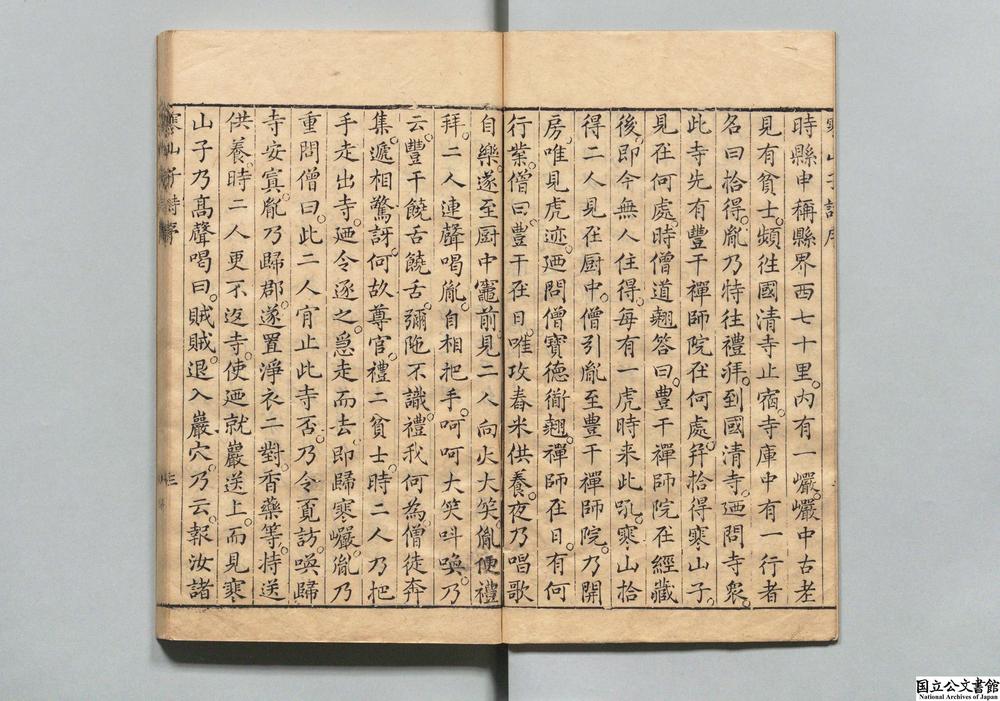 時縣申稱縣界西七十里。内有一巖。巖中古老
見有貧士。頻徃國清寺止宿。寺庫中有一行者
名曰拾得。胤乃特往禮拜。到國清寺。廼問寺衆。
此寺先有豐干禪師院在何處。并拾得寒山子。
見在何處。時僧道翹答曰。豊干禪師院在經藏
後。即今無人住得。每有一虎時来此吼。寒山拾
得二人見在厨中。僧引胤至豊干禪師院。乃開
房。唯見虎迹。廼問僧寶德衜翹。禪師在日。有何
行業。僧曰。豊干在日。唯攻舂米供養。夜乃唱歌
自樂。遂至厨中竈前。見二人向火大笑。胤便禮
拜。二人連聲喝胤。自相把手。呵呵大笑呌喚。乃
云。豐干饒舌饒舌。彌陁不識。禮我何為。僧徒奔
集。遞相驚訝。何故尊官禮二貧士。時二人乃把
手走出寺。廼令逐之。急走而去。即歸寒巖。胤乃
重問僧曰。此二人肯止此寺否。乃令覓訪。喚歸
寺安寘。胤乃歸郡。遂置淨衣二對。香藥等。持送
供養。時二人更不返寺。使廼就巖送上。而見寒
山子乃髙聲喝曰。賊賊。退入巖穴。乃云。報汝諸
寒山子詩序
三
国立公文書館
National Archives of Japan